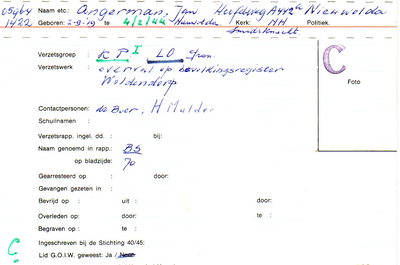 Naam etc.: Angerman, Jan Hoofdweg A442a Nieuwolda
1422 Geboren: 2-9-19 te Nieuwolda Kerk: NH Politiek.
Smidsknecht
Verzetsgroep : K.P I LO
Verzetswerk overval op bevolkingsregister
Woldendorp
C
Foto
Contactpersonen: de Boer, H Mulder
Schuilnamen :
Verzetsrapp. ingel. dd. : bij:
Naam genoemd in rapp.: BS
op bladzijde: 70
Gearresteerd op : door:
Gevangen gezeten in :
Bevrijd op : uit : door:
Overleden op: door: te :
Begraven op : te :
C Ingeschreven bij de Stichting 40/45:
Lid G.O.I.W. geweest: Ja / Nee